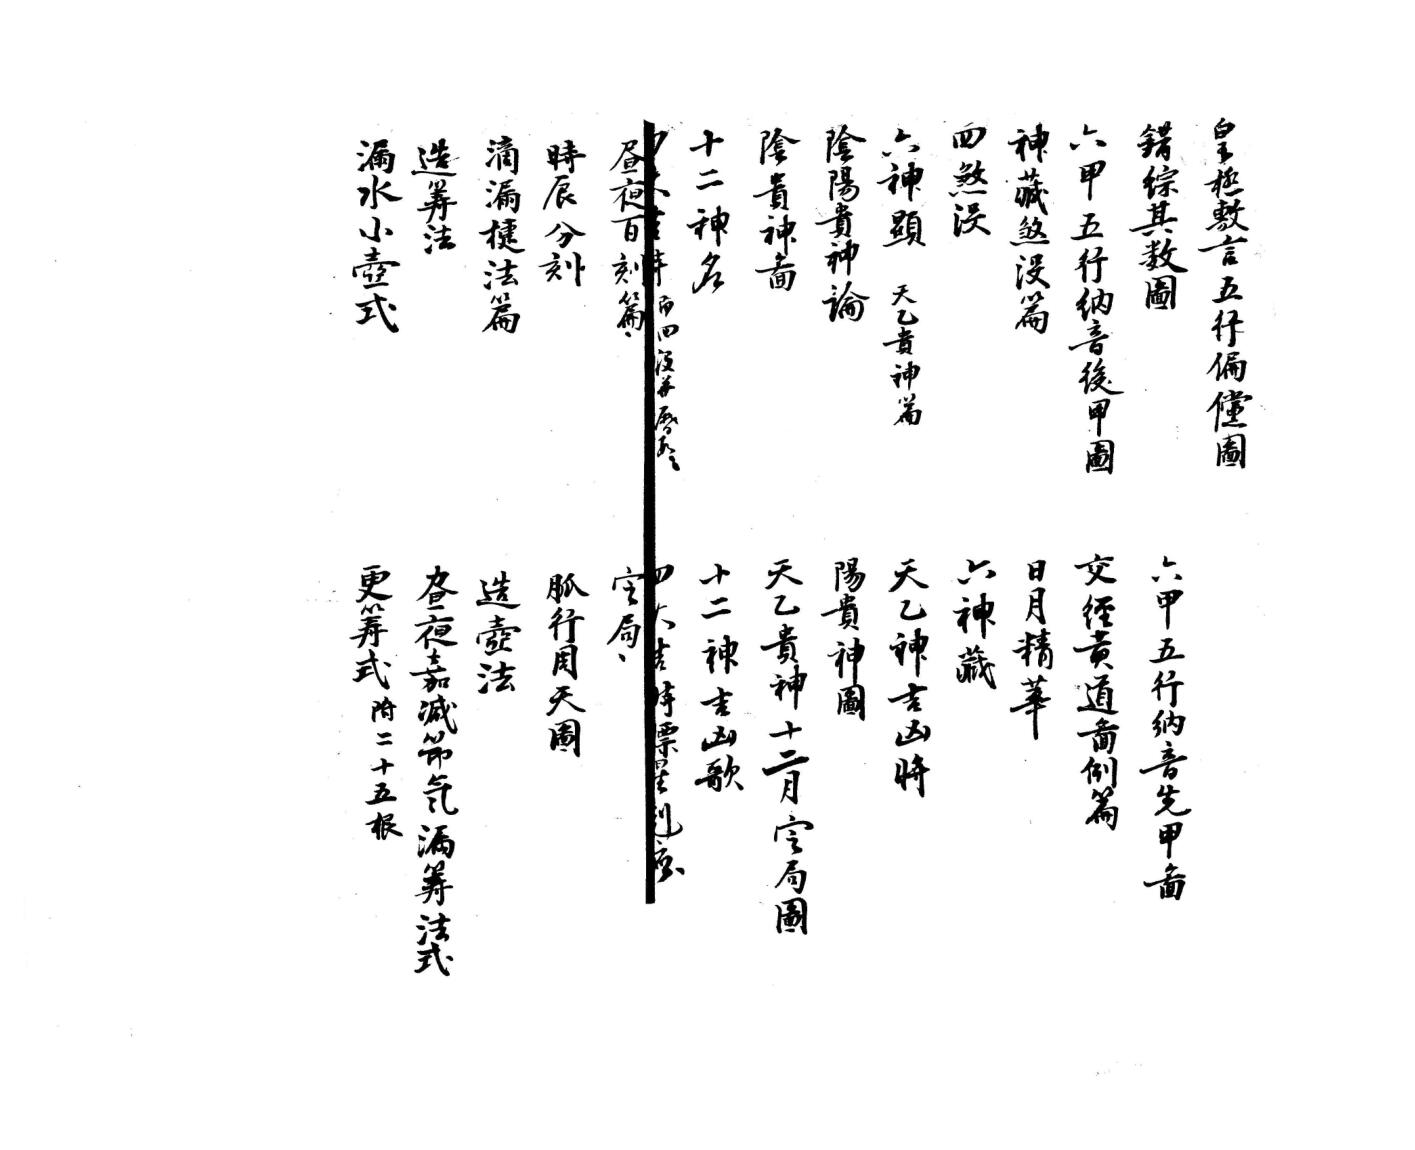 皇極敷言五行偏儻圖
錯綜其数圖
六甲五行納音先甲啚
六甲五行納音後甲圖
交經黄道啚例篇
神藏煞没篇
日月精華
四煞没
六神藏
六神顕 天乙貴神篇
天乙神吉凶時
陰陽貴神論
陽貴神圖
陰貴神啚
天乙貴神十二月定局圖
十二神名
十二神吉凶歌
四大吉時
四大吉時
昼夜百刻篇
定局
時辰分刻
脈行周天圖
滴漏楗法篇
造壺法
造筭法
昼夜嘉减節气漏筭法式
漏水小壺式
更筭式 附二十五根